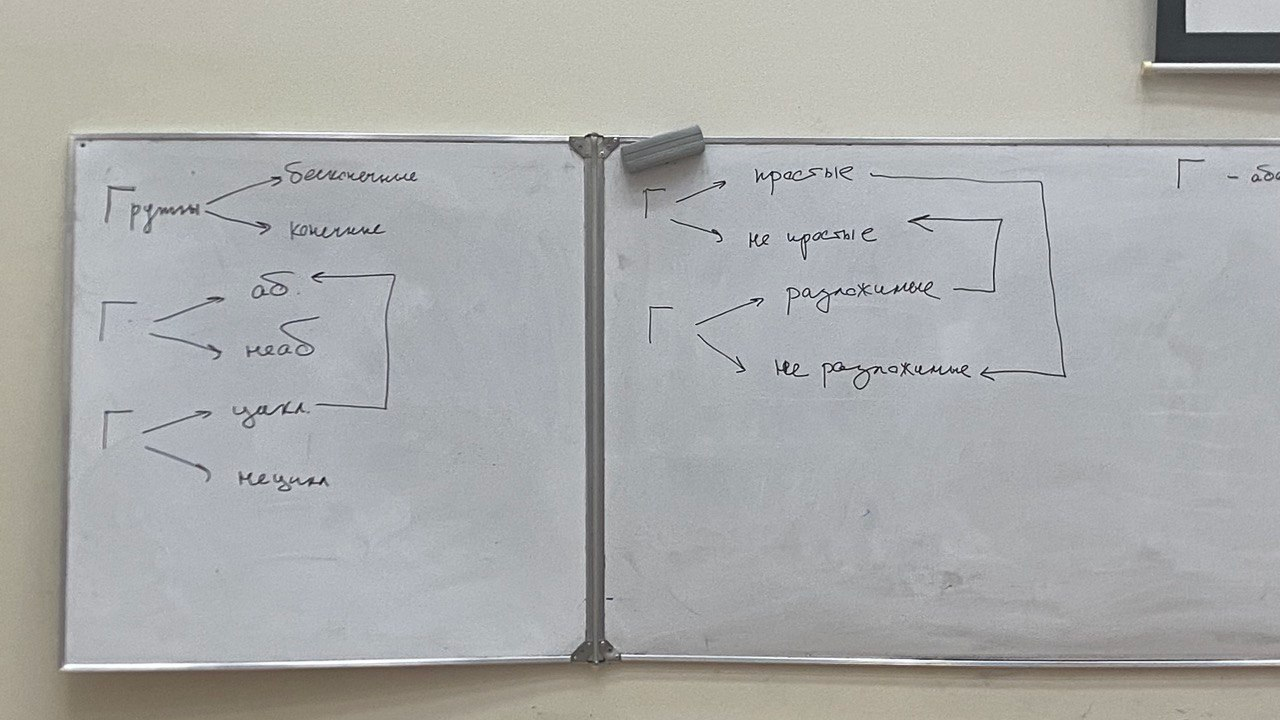 Группы
бесконечные
конечные
Г
аб.
неаб
Г
цикл.
нецикл
Г
простые
не простые
Г
разложимые
не разложимые
Г - аб